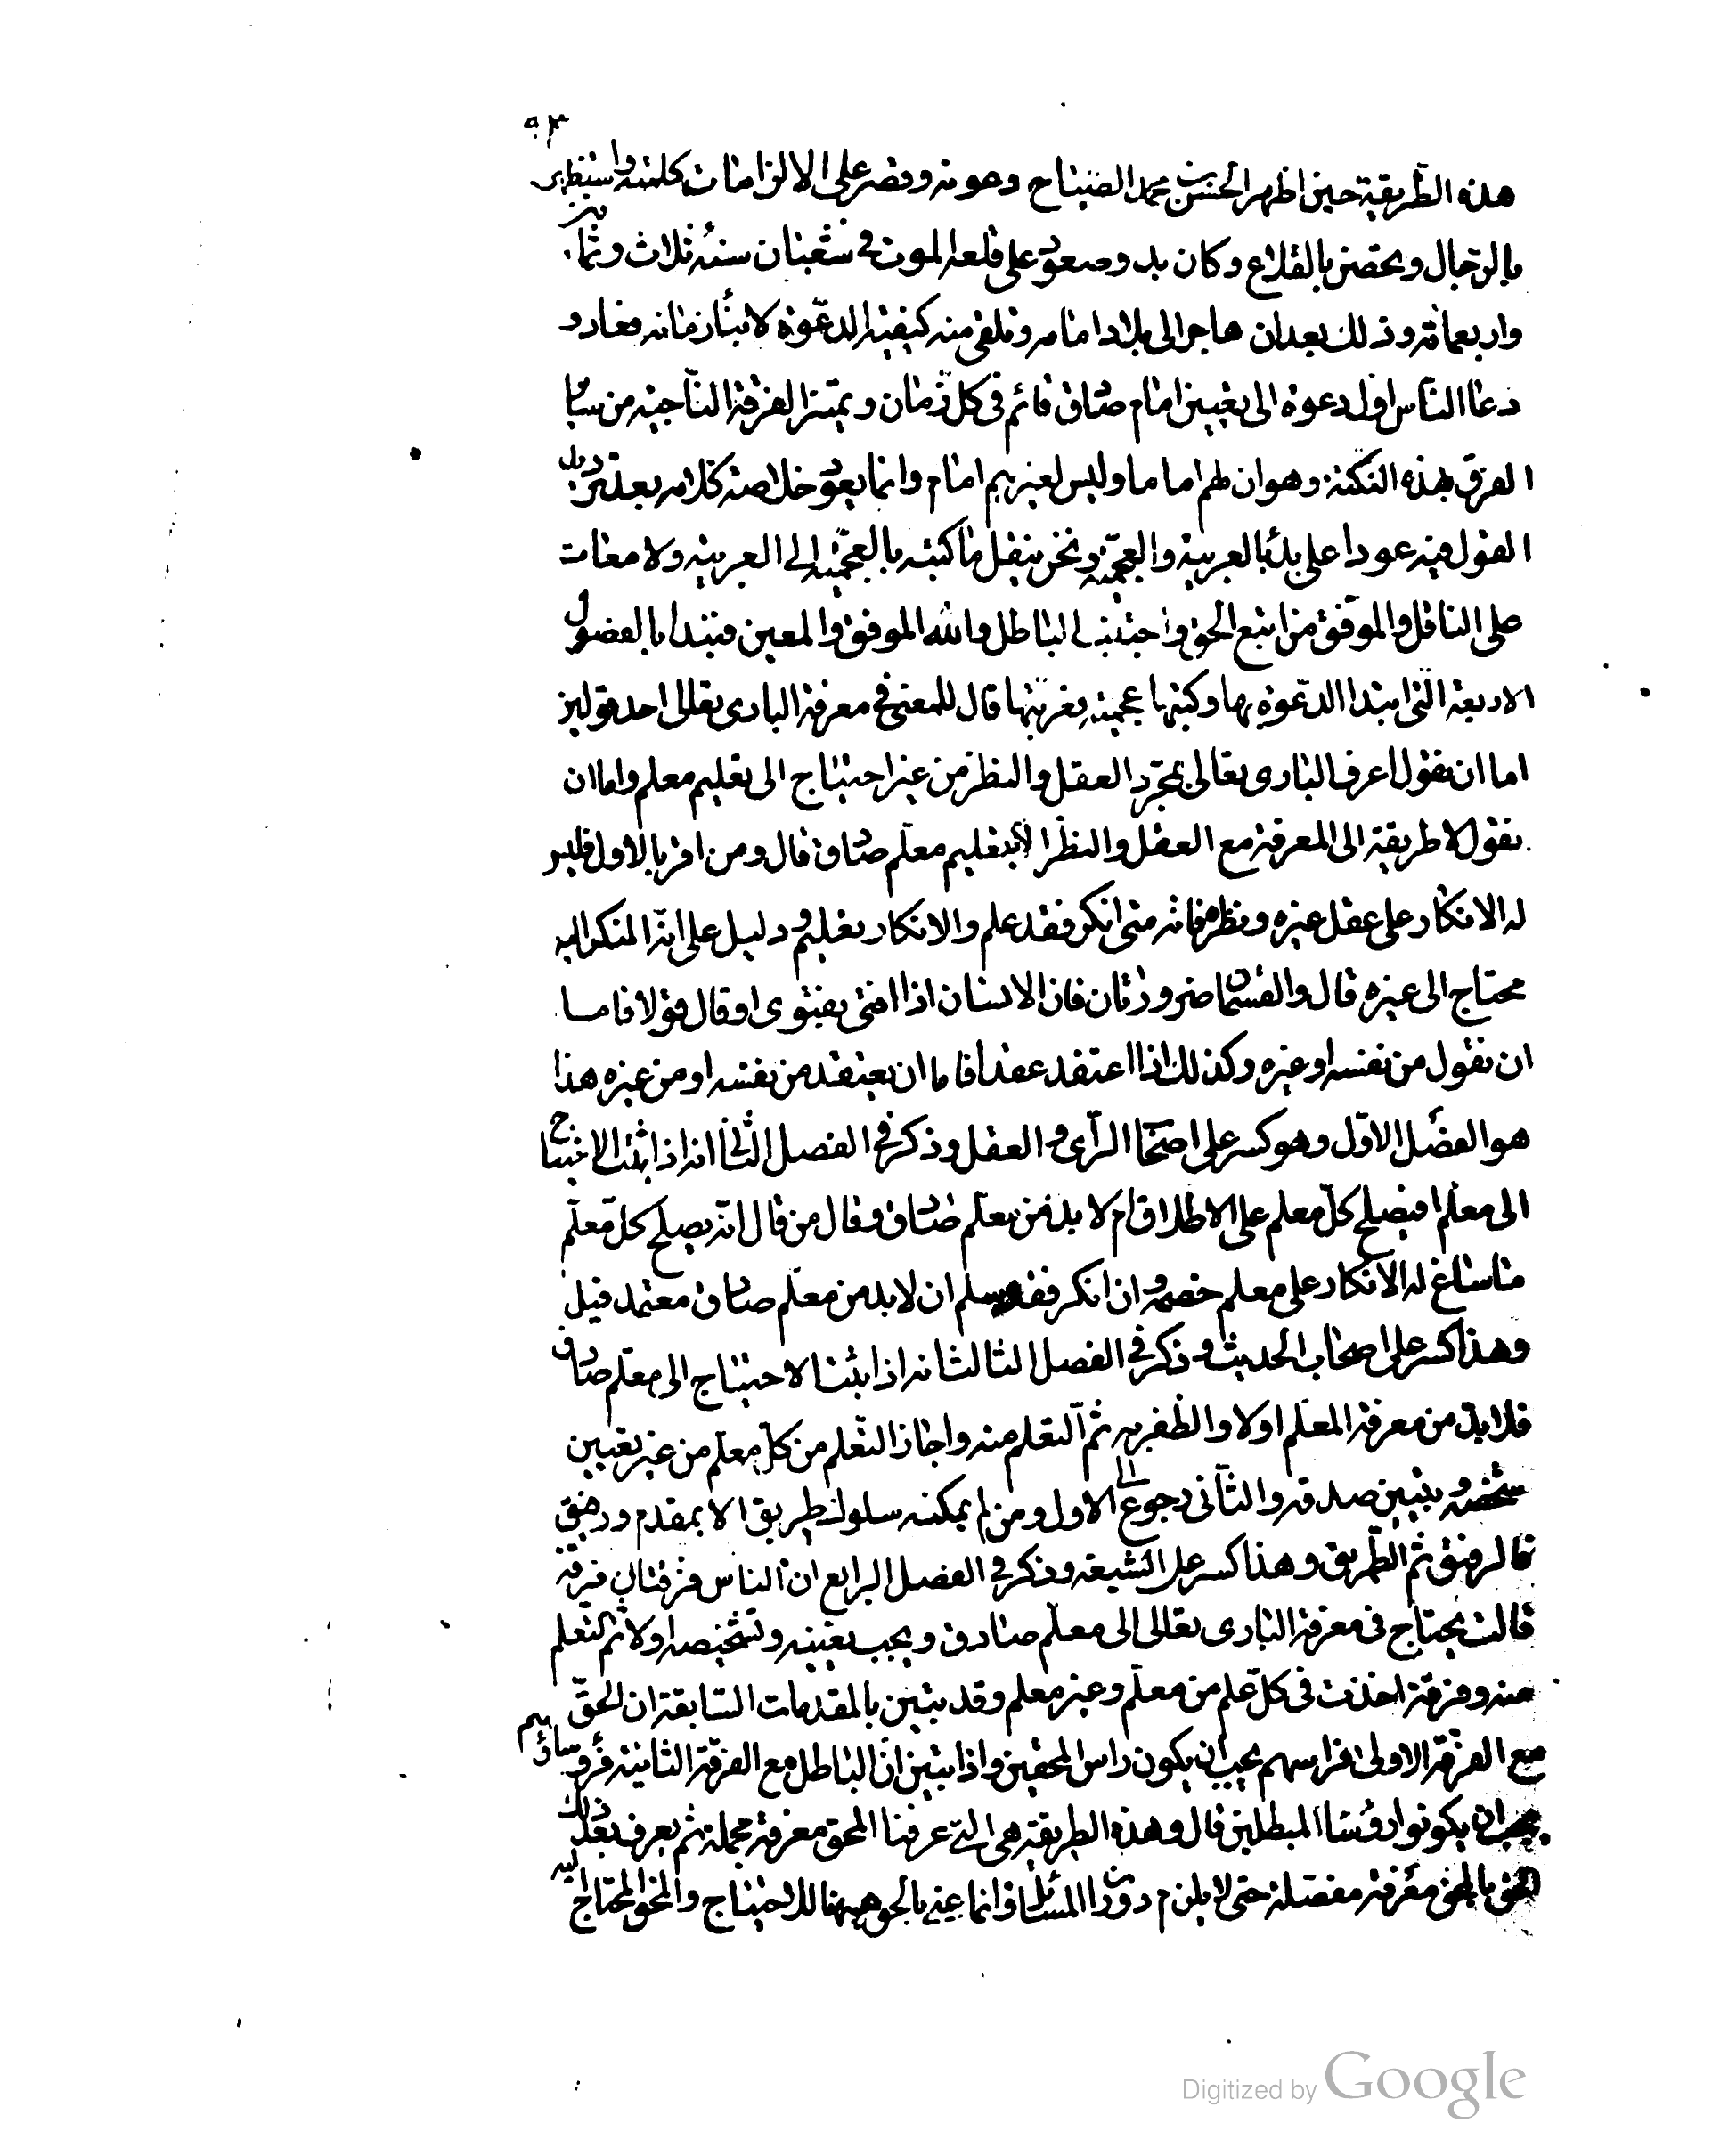 ٩٣
هذه الطريقة حين اظهر الحسن بن محمد الصباح دعوته وقصر على الالزامات كلمته واستظهر
بالرجال وتحصن بالقلاع وكان بدو صعوده على قلعة الموت في شعبان سنة ثلاث وثمانين
واربعمائة وذلك بعد ان هاجر الى بلاد امامه وتلقى منه كيفية الدعوة لابناء زمانه فعاد و
دعا الناس اول دعوة الى تعيين امام صادق قائم في كل زمان وتميز الفرقة الناجية من سائر
الفرق بهذه النكتة وهو ان لهم اماما وليس لغيرهم امام وانما يعود خلاصة كلامه بعد ترديد
القول فيه عودا على بدء بالعربية والعجمية ونحن ننقل ما كتبه بالعجمية الى العربية ولا معاب
على الناقل والموفق من اتبع الحق واجتنب الباطل والله الموفق والمعين فنبدا بالفصول
الاربعة التي ابتدا الدعوة بها وكتبها عجمية فعربتها قال للمفتي في معرفة الباري تعالى احد قولين
اما ان نقول اعرف الباري تعالى بمجرد العقل والنظر من غير احتياج الى تعليم معلم واما ان
نقول لا طريقة الى المعرفة مع العقل والنظر الا بتعليم معلم صادق قال ومن افتى بالاول فليس
له الانكار على عقل غيره ونظره فانه متى انكر فقد علم والانكار تعليم ودليل على ان المنكر اليه
محتاج الى غيره قال والقسمان ضروريان فان الانسان اذا افتى بفتوى او قال قولا فاما
ان نقول من نفسه او غيره وكذلك اذا اعتقد عقدا فاما ان يعتقد من نفسه او من غيره هذا
هو الفصل الاول وهو كسر على اصحاب الراى و العقل وذكر في الفصل الثاني انه اذا ثبت الاحتياج
الى معلم افيصلح كل معلم على الاطلاق ام لا بد من معلم صادق وقال من قال انه يصلح كل معلم
ما ساغ له الانكار على معلم خصمه وان انكر فقد سلم ان لا بد من معلم صادق معتمد قيل
وهذا كسر على اصحاب الحديث و ذكر في الفصل الثالث انه اذا ثبت الاحتياج الى معلم صادق
فلا بد من معرفة المعلم اولا والظفر به ثم التعلم منه واجاز التعلم من كل معلم من غير تعيين
شخصه وتبيين صدقه والثاني رجوع الى الاول ومن لم يمكنه سلوك طريق الا بمقدم ورفيق
فالرفيق ثم الطريق وهذا كسر على الشيعة وذكر في الفصل الرابع ان الناس فرقتان فرقة
قالت يحتاج في معرفة الباري تعالى الى معلم صادق ويجب تعيينه وتشخيصه اولا ثم التعلم
منه وفرقة اخذت في كل علم من معلم وغير معلم وقد تبين بالمقدمات السابقة ان الحق
مع الفرقة الاولى فراسهم يجب ان يكون راس المحقين واذا تبين ان الباطل مع الفرقة الثانية فرؤساؤهم
يجب ان يكونوا رؤساء المبطلين قال وهذه الطريقة هي التي عرفنا المحق معرفة مجملة ثم يعرف بعد ذلك
الحق بالمحق معرفة مفصلة حتى لا يلزم دوران المسائل وانما عني بالحق ههنا للاحتياج والمحق المحتاج اليه
Digitized by Google